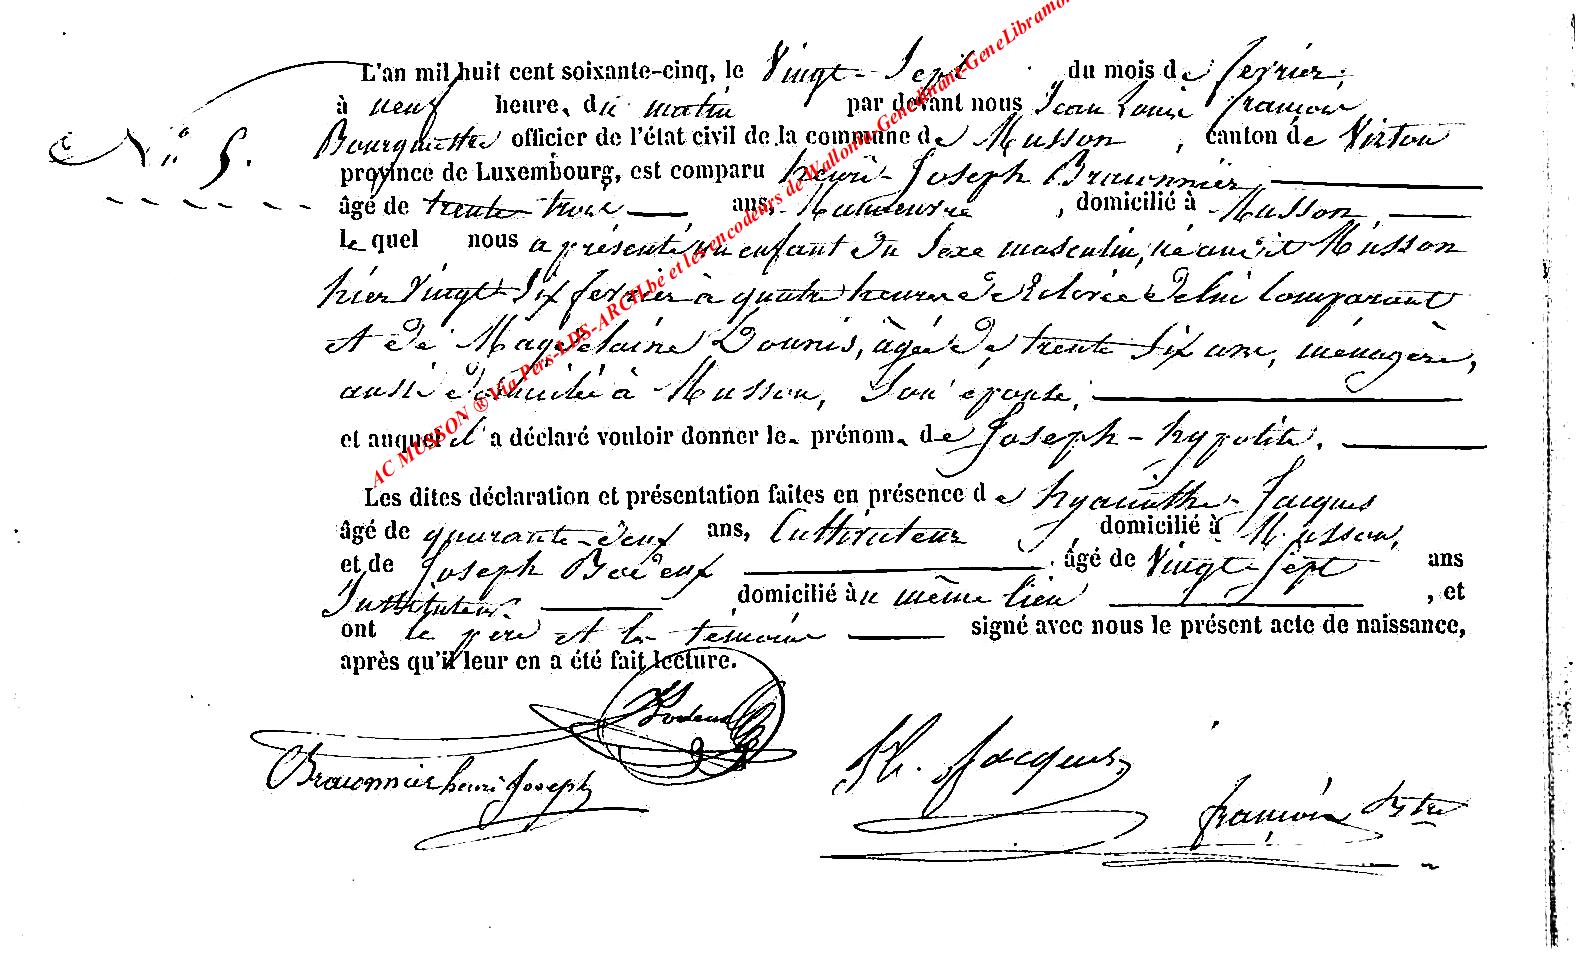 L'an mil huit cent soixante-cinq, le Vingt-Sept du mois de février,
à neuf heure, du matin par devant nous Jean Louis françois
N° 5. Bourguitte officier de l'état civil de la commune de Musson, canton de Virton
province de Luxembourg, est comparu henri-Joseph Braconnier,
âgé de trente trois ans, Manœuvre, domicilié à Musson,
lequel nous a présenté un enfant du Sexe masculin, né audit Musson
hier Vingt-Six février à quatre heures de Relevée de lui Comparant
et de Magdelaine Dounis, âgée de trente Six ans, ménagère,
aussi domiciliée à Musson, Son épouse,
et auquel il a déclaré vouloir donner le prénom de Joseph-hypolite.
Les dites déclaration et présentation faites en présence de hyacinthe Jacques
âgé de quarante-deux ans, Cultivateur, domicilié à Musson,
et de Joseph, âgé de Vingt-Sept ans
Instituteur domicilié au même lieu, et
ont le père et les témoins signé avec nous le présent acte de naissance,
après qu'il leur en a été fait lecture.
Braconnier henri Joseph
h. Jacques
françois
AC MUSSON ® Via Pers-LDS-ARCH.be et les encodeurs de Wallonia-Genedinant-GeneLibramo